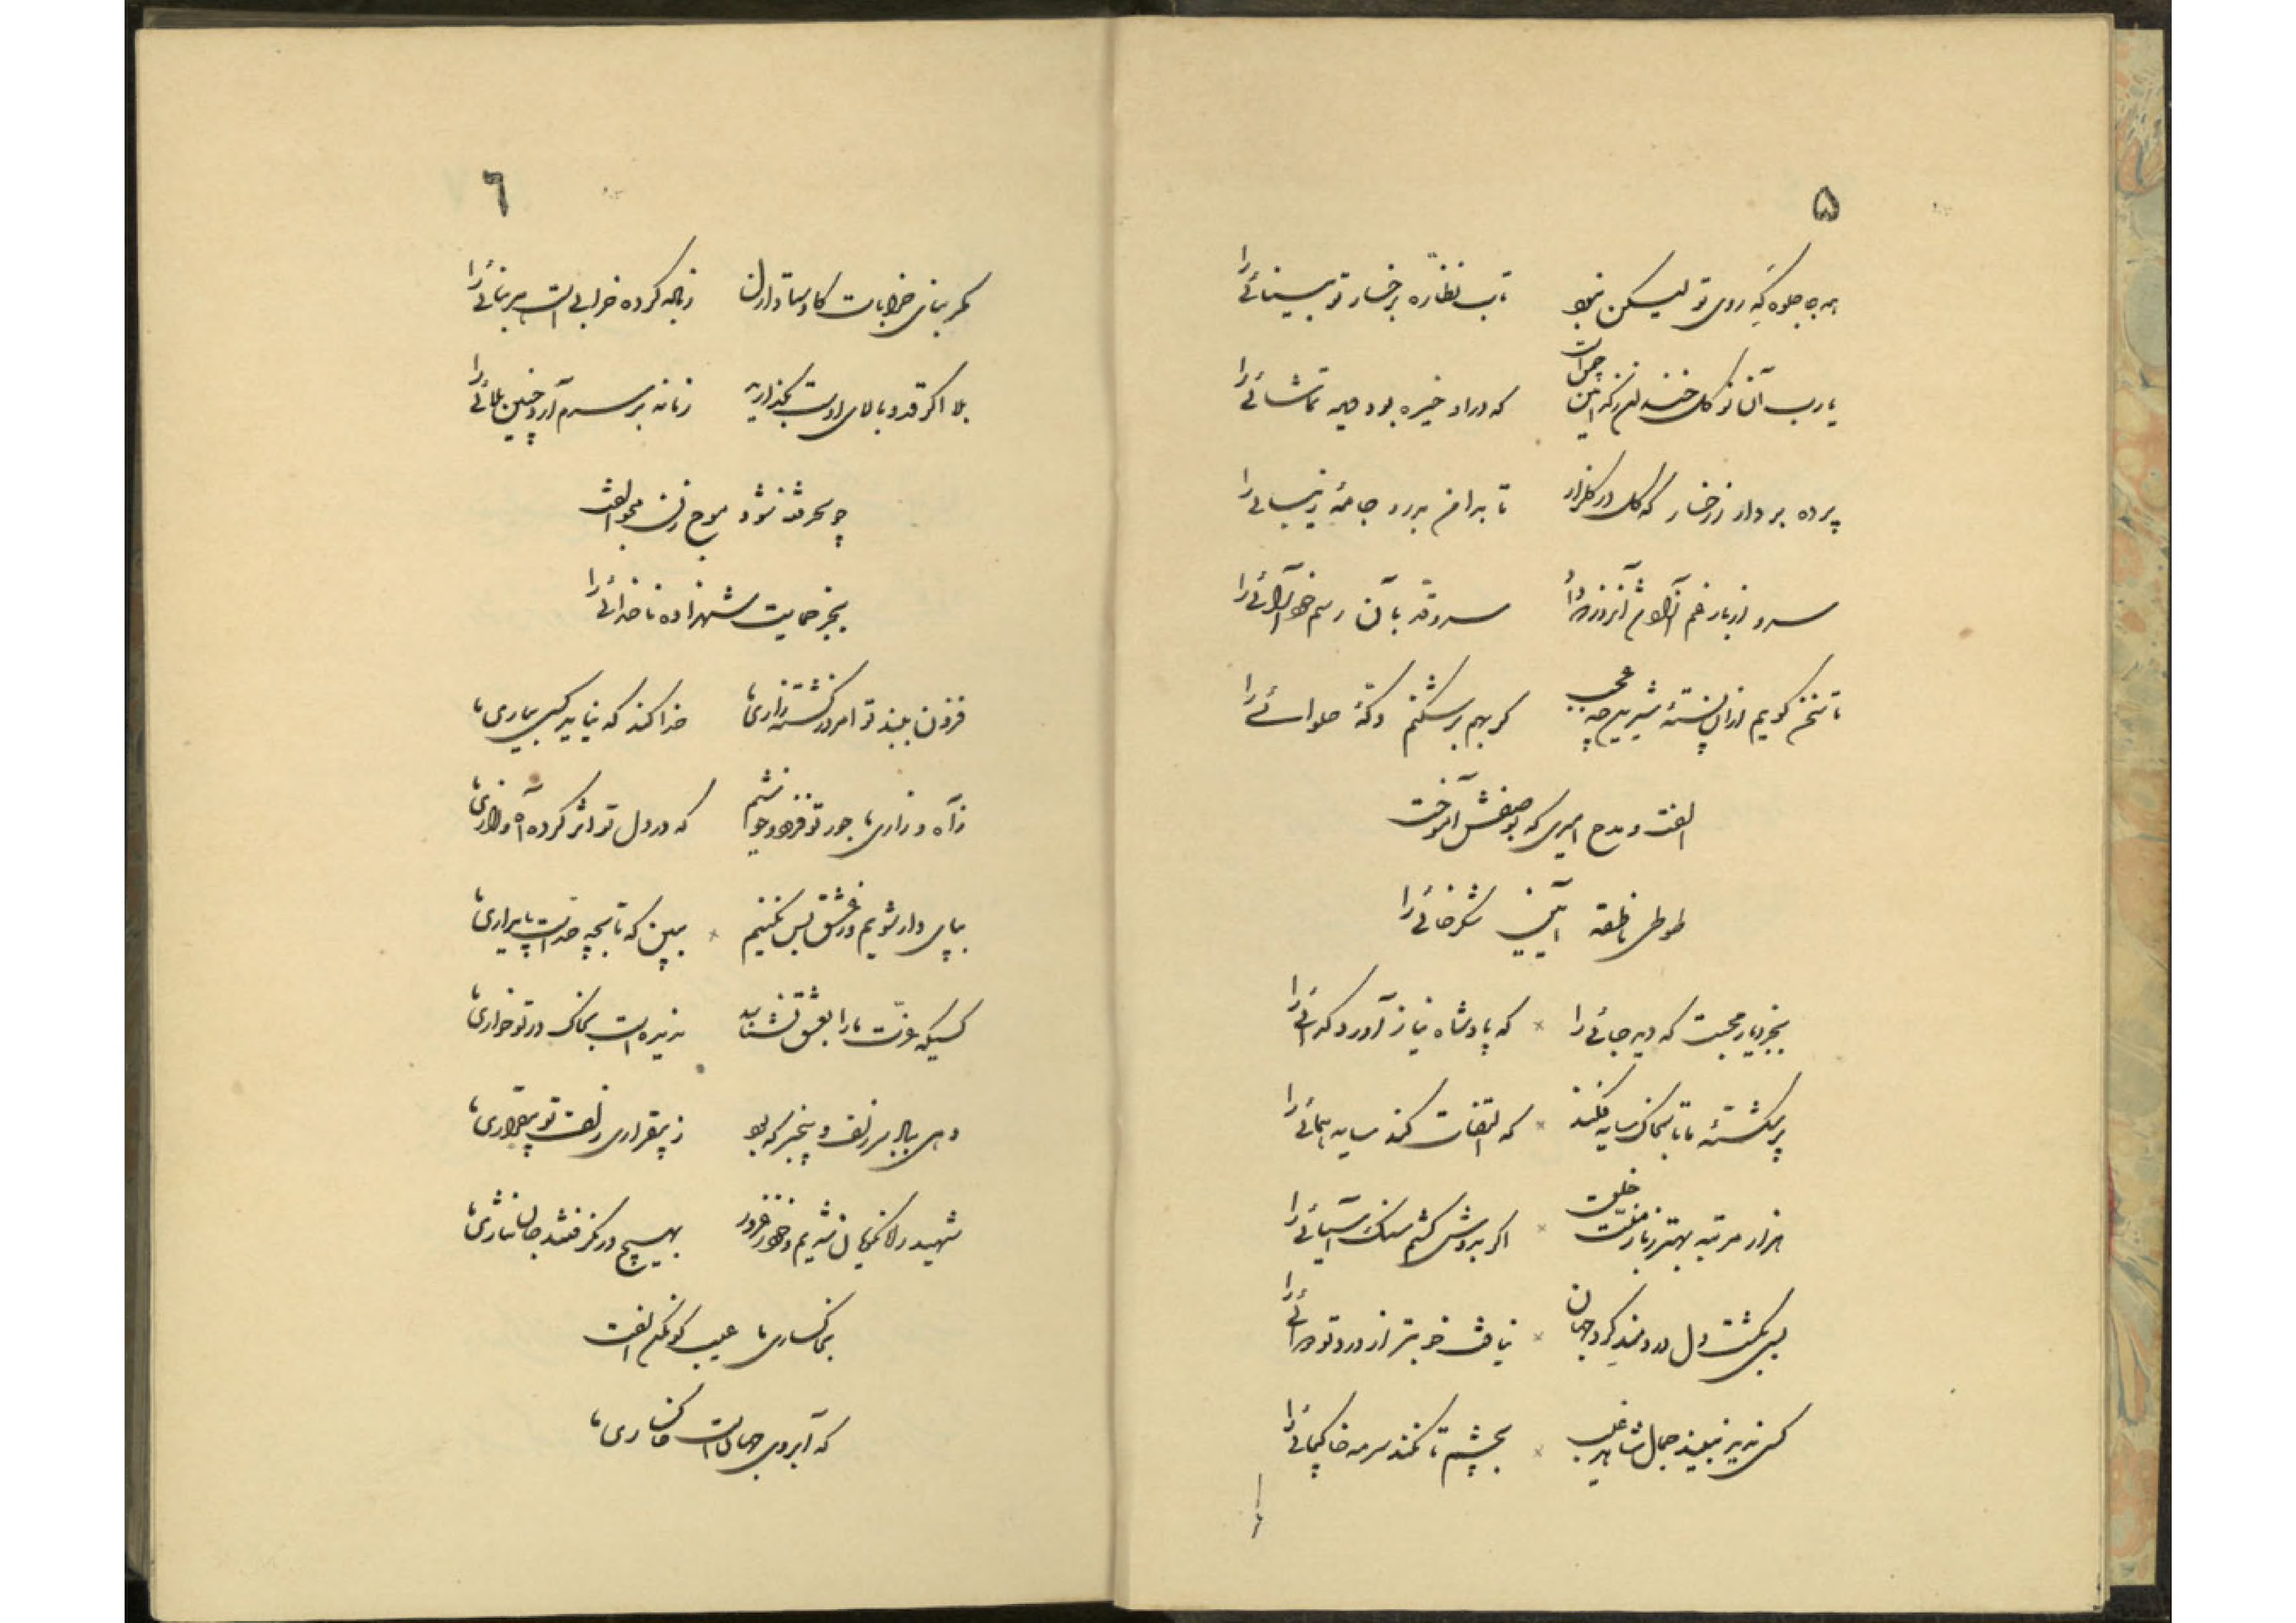 ۵
همه جا جلوه‌گه روی تو لیکن نبود تاب نظاره رخسار تو بینائی را
یارب آن نو گل خندان ز که این چمن است که در او خیره بود دیده تماشائی را
پرده بردار ز رخسار که گل در گلزار تا بدامن بدرد جامه زیبائی را
سرو از بار غم آزاد شد آنروز که داد سرو قد تا بآن رسم خود آرائی را
تا سخن گویم از آن پسته شیرین چه عجب گر بهم برشکنم دکه حلوائی را
الفت و مدح امیری که بوصفش آموخت
طوطی ناطقه آیین شکرخائی را
بجز دیار محبت که دیده جائی را که پادشاه نیاز آورد گدائی را
پر شکسته ما تا بخاک سایه فکند که التفات کند سایه همائی را
هزار مرتبه بهتر ز بار منت خلق اگر بدوش کشم سنگ آسیائی را
بسی بگشت دل دردمند گرد جهان نیافت خوبتر از درد تو دوائی را
کسی ندید نبیند جمال شاهد غیب بچشم تا نکند سرمه خاکپائی را
٦
مگر بنای خرابات کاوستاد ازل زمانه کرده خراب است هر بنائی را
بلا اگر قد و بالای اوست بگذارید زمانه بر سرم آرد چنین بلائی را
چو بحر فتنه شود موج زن مجو الفت
بجز حمایت شهزاده ناخدائی را
فزون پسند تو امروز گشته زاری ما خدا کند که نیاید کسی بیاری ما
ز آه و زاری ما جور تو فزود و خوشم که در دل تو اثر کرده آه و زاری ما
بپای دار شویم و ز عشق بس نکنیم ببین که تا بچه حد است پایداری ما
کسیکه عزت ما را بعشق نشناسد ندیده است بخاک در تو خواری ما
دمی بباد سر زلف و بیخبر که بود ز بیقراری زلف تو بیقراری ما
شهید راه نکویان شدیم و خود ز غرور بهیچ در نگرفتند جان نثاری ما
بخاکساری ما عیب گو مکن الفت
که آبروی جهان است خاکساری ما